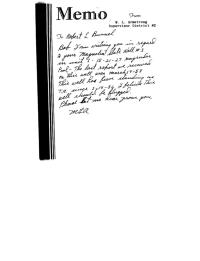 Memo
From
W. L. Armstrong
Supervisor District #2
To Robert L Bunnel
Bob I am writing you in regard
to your Magnolia State Well #1
in unit 9-15-21-27
Pool - The last report we received
on this well was March 17-59
This well has been standing as
T.A. since I believe this
well should be plugged.
Please let me hear from you,